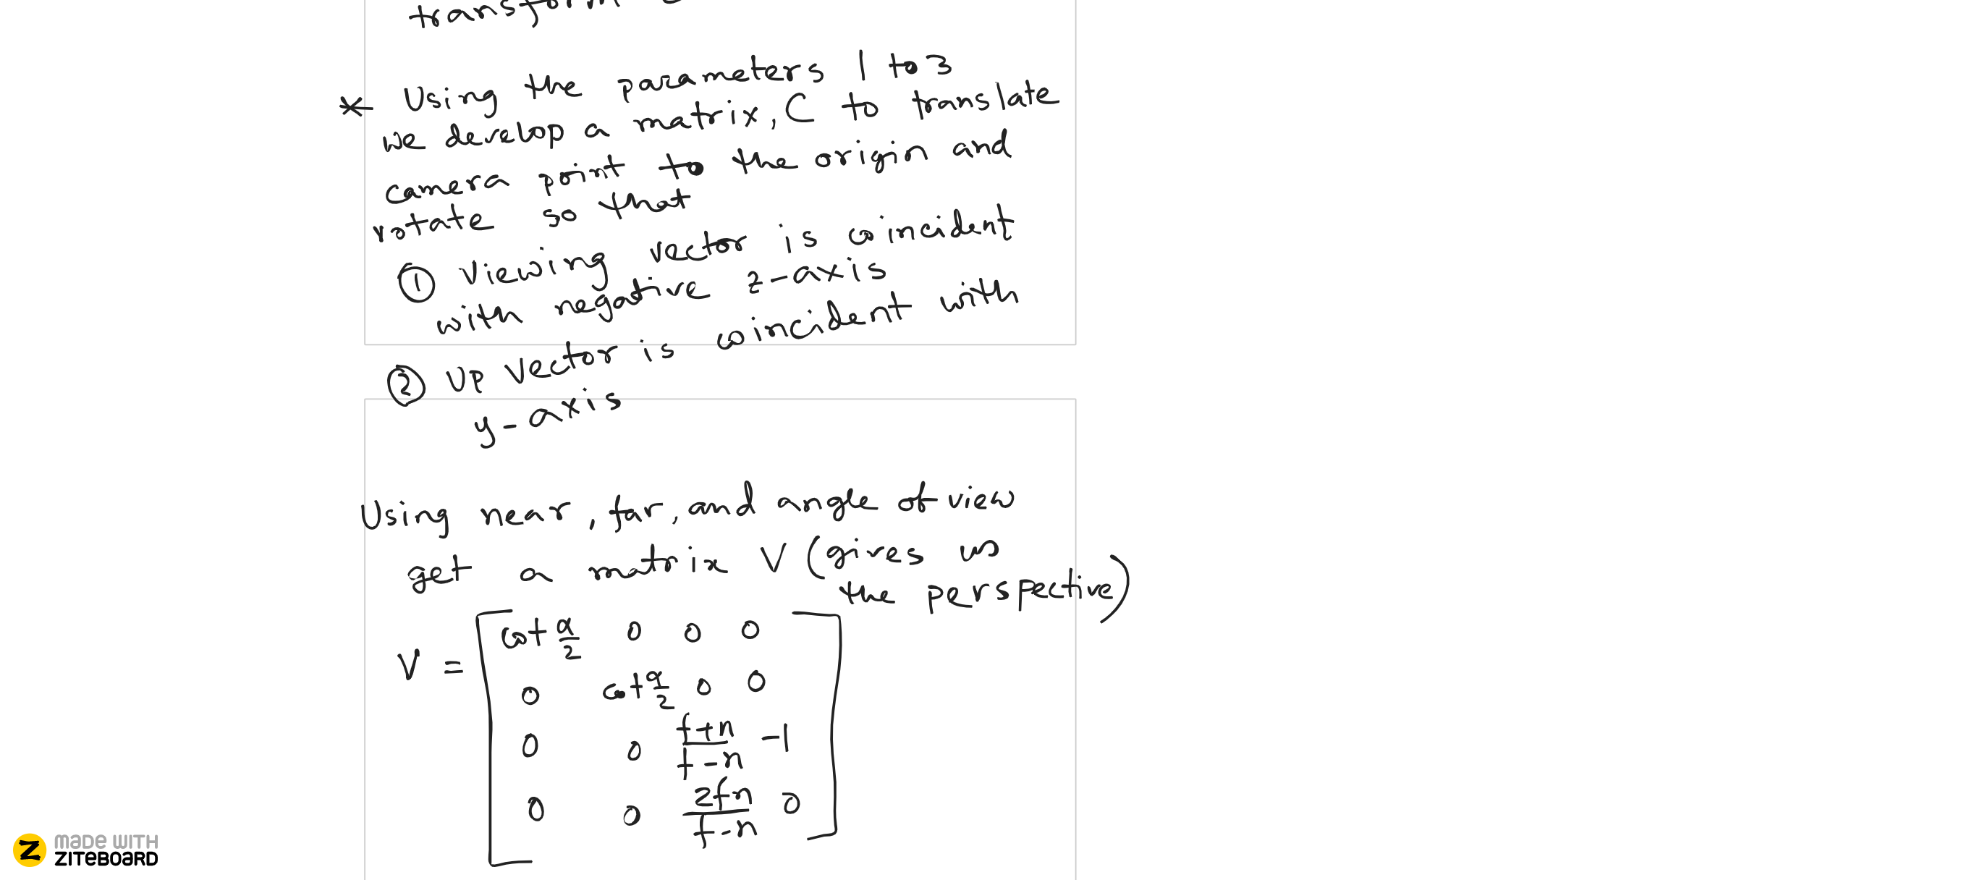 transform
* Using the parameters 1 to 3
we develop a matrix, C to translate
camera point to the origin and
rotate so that
① Viewing vector is coincident
with negative z-axis
② Up vector is coincident with
y-axis
Using near, far, and angle of view
get a matrix V (gives us
the perspective)
V = [ cot α/2 0 0 0
0 cot α/2 0 0
0 0 f+n/f-n -1
0 0 2fn/f-n 0 ]
MADE WITH
ZITEBOARD